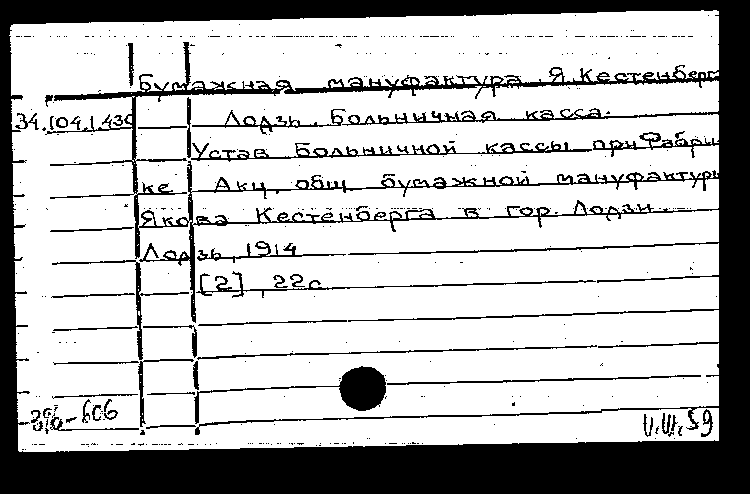 Бумажная мануфактура Я. Кестенберга
34.104.1.430 Лодзь. Больничная касса.
Устав Больничной кассы при Фабри-
ке Акц. общ. бумажной мануфактуры
Якова Кестенберга в гор. Лодзи.
Лодзь, 1914
[2], 22с
606
59